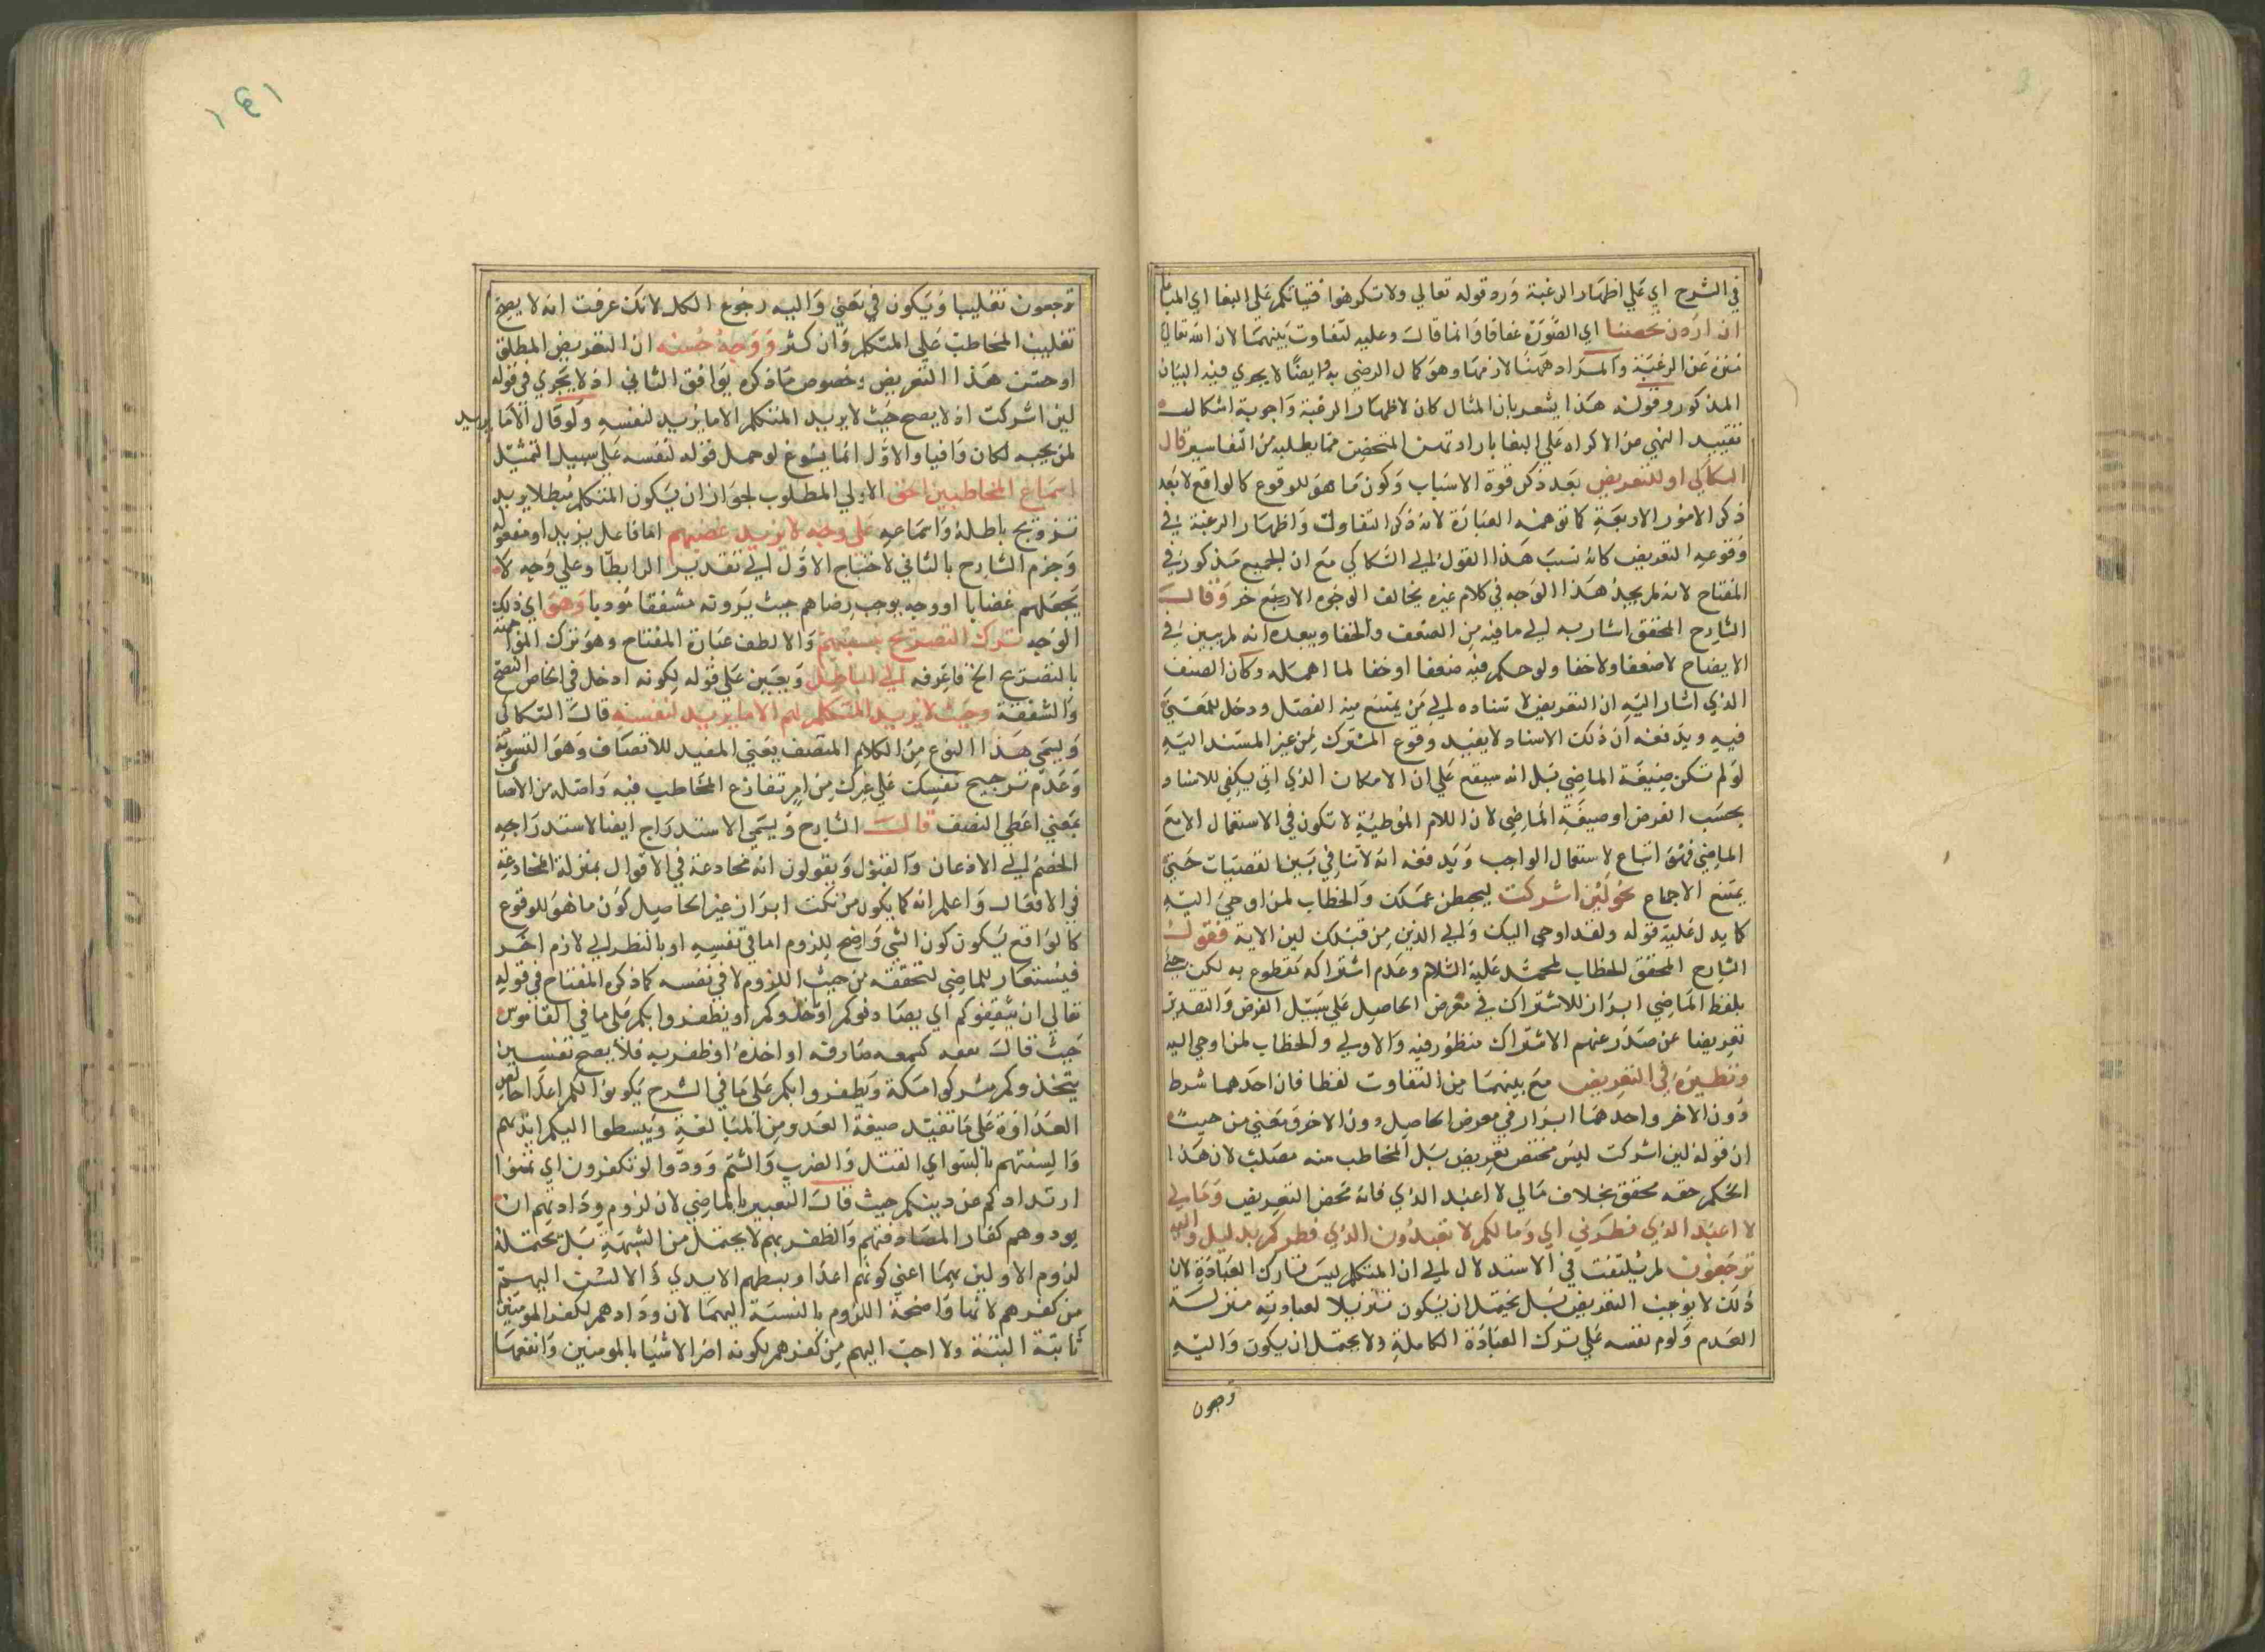 في الشرح اي علي اظهار الرغبة ورد قوله تعالي ولا تكرهوا فتياتكم علي البغا اي
ان اردن تحصنا اي الصورة عفافا وانما قال وعليه لتفاوت بينهما لان الله تعالي
منزه عن الرغبة والمراد ههنا لازمها وهو كمال الرضي به وايضا لا يجري فيه البيان
المذكور وقوله هذا يشعر بان المثال كان لاظهار الرغبة واجوبة اشكال
تقييد النهي من الاكراه علي البغا بارادتهن التحصن مما يطلب من التفاسير قال
السكاكي او للتعريض بعد ذكر قوة الاسباب وكون ما هو للوقوع كالواقع لا بعد
ذكر الامور الاربعة كما توهمه العبارة لانه ذكر التفاول واظهار الرغبة في
وقوعه التعريض كانه نسب هذا القول الي السكاكي مع ان الجميع مذكور في
المفتاح لانه لم يجد هذا الوجه في كلام غيره بخالف الوجوه الاربع خر وقال
الشارح المحقق اشار به الي ما فيه من الضعف والخفا ويبعده انه لم يبين في
الايضاح لا ضعفا ولا خفا ولو حكم فيه ضعفا او خفا لما اهمله وكان الضعف
الذي اشار اليه ان التعريض لا سناده الي من يمتنع منه الفصل ودخل للمعني
فيه ويدفعه ان ذلك الاسناد لا يفيد وقوع المشترك من غير المسند اليه
لو لم تكن صيغة الماضي بل انه سيقع علي ان الامكان الذي اتي يكفي للاسناد
بحسب الفرض او صيغة الماضي لان اللام الموطئة لا تكون في الاستعمال الا مع
الماضي فهو اتباع لاستعمال الواجب ويدفعه انه لا تنافي بين المقتضيات حتي
يمتنع الاجماع نحو لئن اشركت ليحبطن عملك والخطاب لمن اوحي اليه
كما يدل عليه قوله ولقد اوحي اليك والي الذين من قبلك لين الاية فقول
الشارح المحقق الخطاب لمحمد عليه السلام وعدم اشراكه مقطوع به لكن جئ
بلفظ الماضي ابراز للاشراك في معرض الحاصل علي سبيل الفرض والتقدير
تعريضا عن صدر عنهم الاشراك منظور فيه والاولي والخطاب لمن اوحي اليه
ونظيره في التعريض مع بينهما من التفاوت لفظا فان احدهما شرط
دون الاخر واحدهما ابراز في معرض الحاصل دون الاخر ومعني من حيث
ان قوله لين اشركت ليس محض تعريض بل المخاطب منه مصلت لان هذا
الحكم حقه محقق بخلاف مالي لا اعبد الذي فانه محض التعريض ومالي
لا اعبد الذي فطرني اي وما لكم لا تعبدون الذي فطركم بدليل واليه
ترجعون لم يلتفت في الاستدلال الي ان المتكلم ليس تارك العبادة لان
ذلك لا يوجب التعريض بل يحتمل ان يكون تنزيلا لعبادته منزلة
العدم ولوم نفسه علي ترك العبادة الكاملة ولا يحتمل ان يكون واليه
ترجعون
١٤١
ترجعون تغليبا ويكون في معني واليه رجوع الكل لانك عرفت انه لا يصح
تغليب المخاطب علي المتكلم وان كثر ووجه حسنه ان التعريض المطلق
او حسن هذا التعريض وخصوص ما ذكره يوافق الثاني اذ لا يجري في قوله
لين اشركت اذ لا يصح حيث لا يريد المتكلم الا ما يريد لنفسه ولو قال الا ما يريد
لمن يحبه لكان وافيا والاول انما يسوغ لو حمل قوله لنفسه علي سبيل التمثيل
اسماع المخاطبين الحق الاولي المطلوب لجواز ان يكون المتكلم مبطلا يريد
ترويج باطله واسماعه علي وجه لا يزيد غضبهم اما فاعل يزيد او مفعوله
وجزم الشارح بالثاني لاحتياج الاول الي تقدير الرابط او علي وجه لا
يجعلهم غضابا او وجه يوجب رضاهم حيث يروته مشفقا مؤديا وهو اي ذلك
الوجه ترك التصريح بنسبتهم والالطف عبارة المفتاح وهو ترك المواجهة
بالتصريح الخ فاعرفه الي الباطل ويعين علي قوله لكونه ادخل في امحاض النصح
والشفقة وحيث لا يريد المتكلم لهم الا ما يريد لنفسه قال السكاكي
ويسمي هذا النوع من الكلام المنصف يعني المفيد للانصاف وهو التسوية
وعدم ترجيح نفسك علي غيرك من امر تنازع المخاطب فيه واصله من الانصاف
بمعني اعطي النصف قال الشارح ويسمي الاستدراج ايضا لاستدراجه
الخصم الي الاذعان والقبول ويقولون انه مخادعة في الاقوال بمنزلة المخادعة
في الافعال واعلم انه كما يكون من نكت ابراز غير الحاصل كون ما هو للوقوع
كالواقع يكون كون الشي واضح للزوم اما في نفسه او بالنظر الي لازم اخر
فيستعار للماضي لتحققه من حيث اللزوم لا في نفسه كما ذكره المفتاح في قوله
تعالي ان يثقفوكم اي يصادفوكم او خلوكم او يظفروا بكم علي ما في القاموس
حيث قال ثقفه كسمعه صادفه او اخذه او ظفر به فلا يصح تفسير
يتخذوكم مشركوا مكة ويظفروا بكم علي ما في الشرح يكونوا لكم اعدا خالص
العداوة علي ما تفيد صيغة العدو من المبالغة ويبسطوا اليكم ايديهم
والسنتهم بالسوا اي القتل والضرب والشتم وودوا لو تكفرون اي تمنوا
ارتدادكم عن دينكم حيث قال التعبير بالماضي لان لزوم ودادتهم ان
يردوهم كفار المصادفتهم والظفر بهم لا يحتمل من الشبهة بل تحتمله
لزوم الاولين بهما اعني كونهم اعدا وبسطهم الايدي والالسن اليهم
من كفرهم لانها واضحة اللزوم بالنسبة اليهما لان ودادهم لكفر المومنين
ثابتة البتة ولا احب اليهم من كفرهم لكونه اضر الاشيا بالمومنين وانفعها